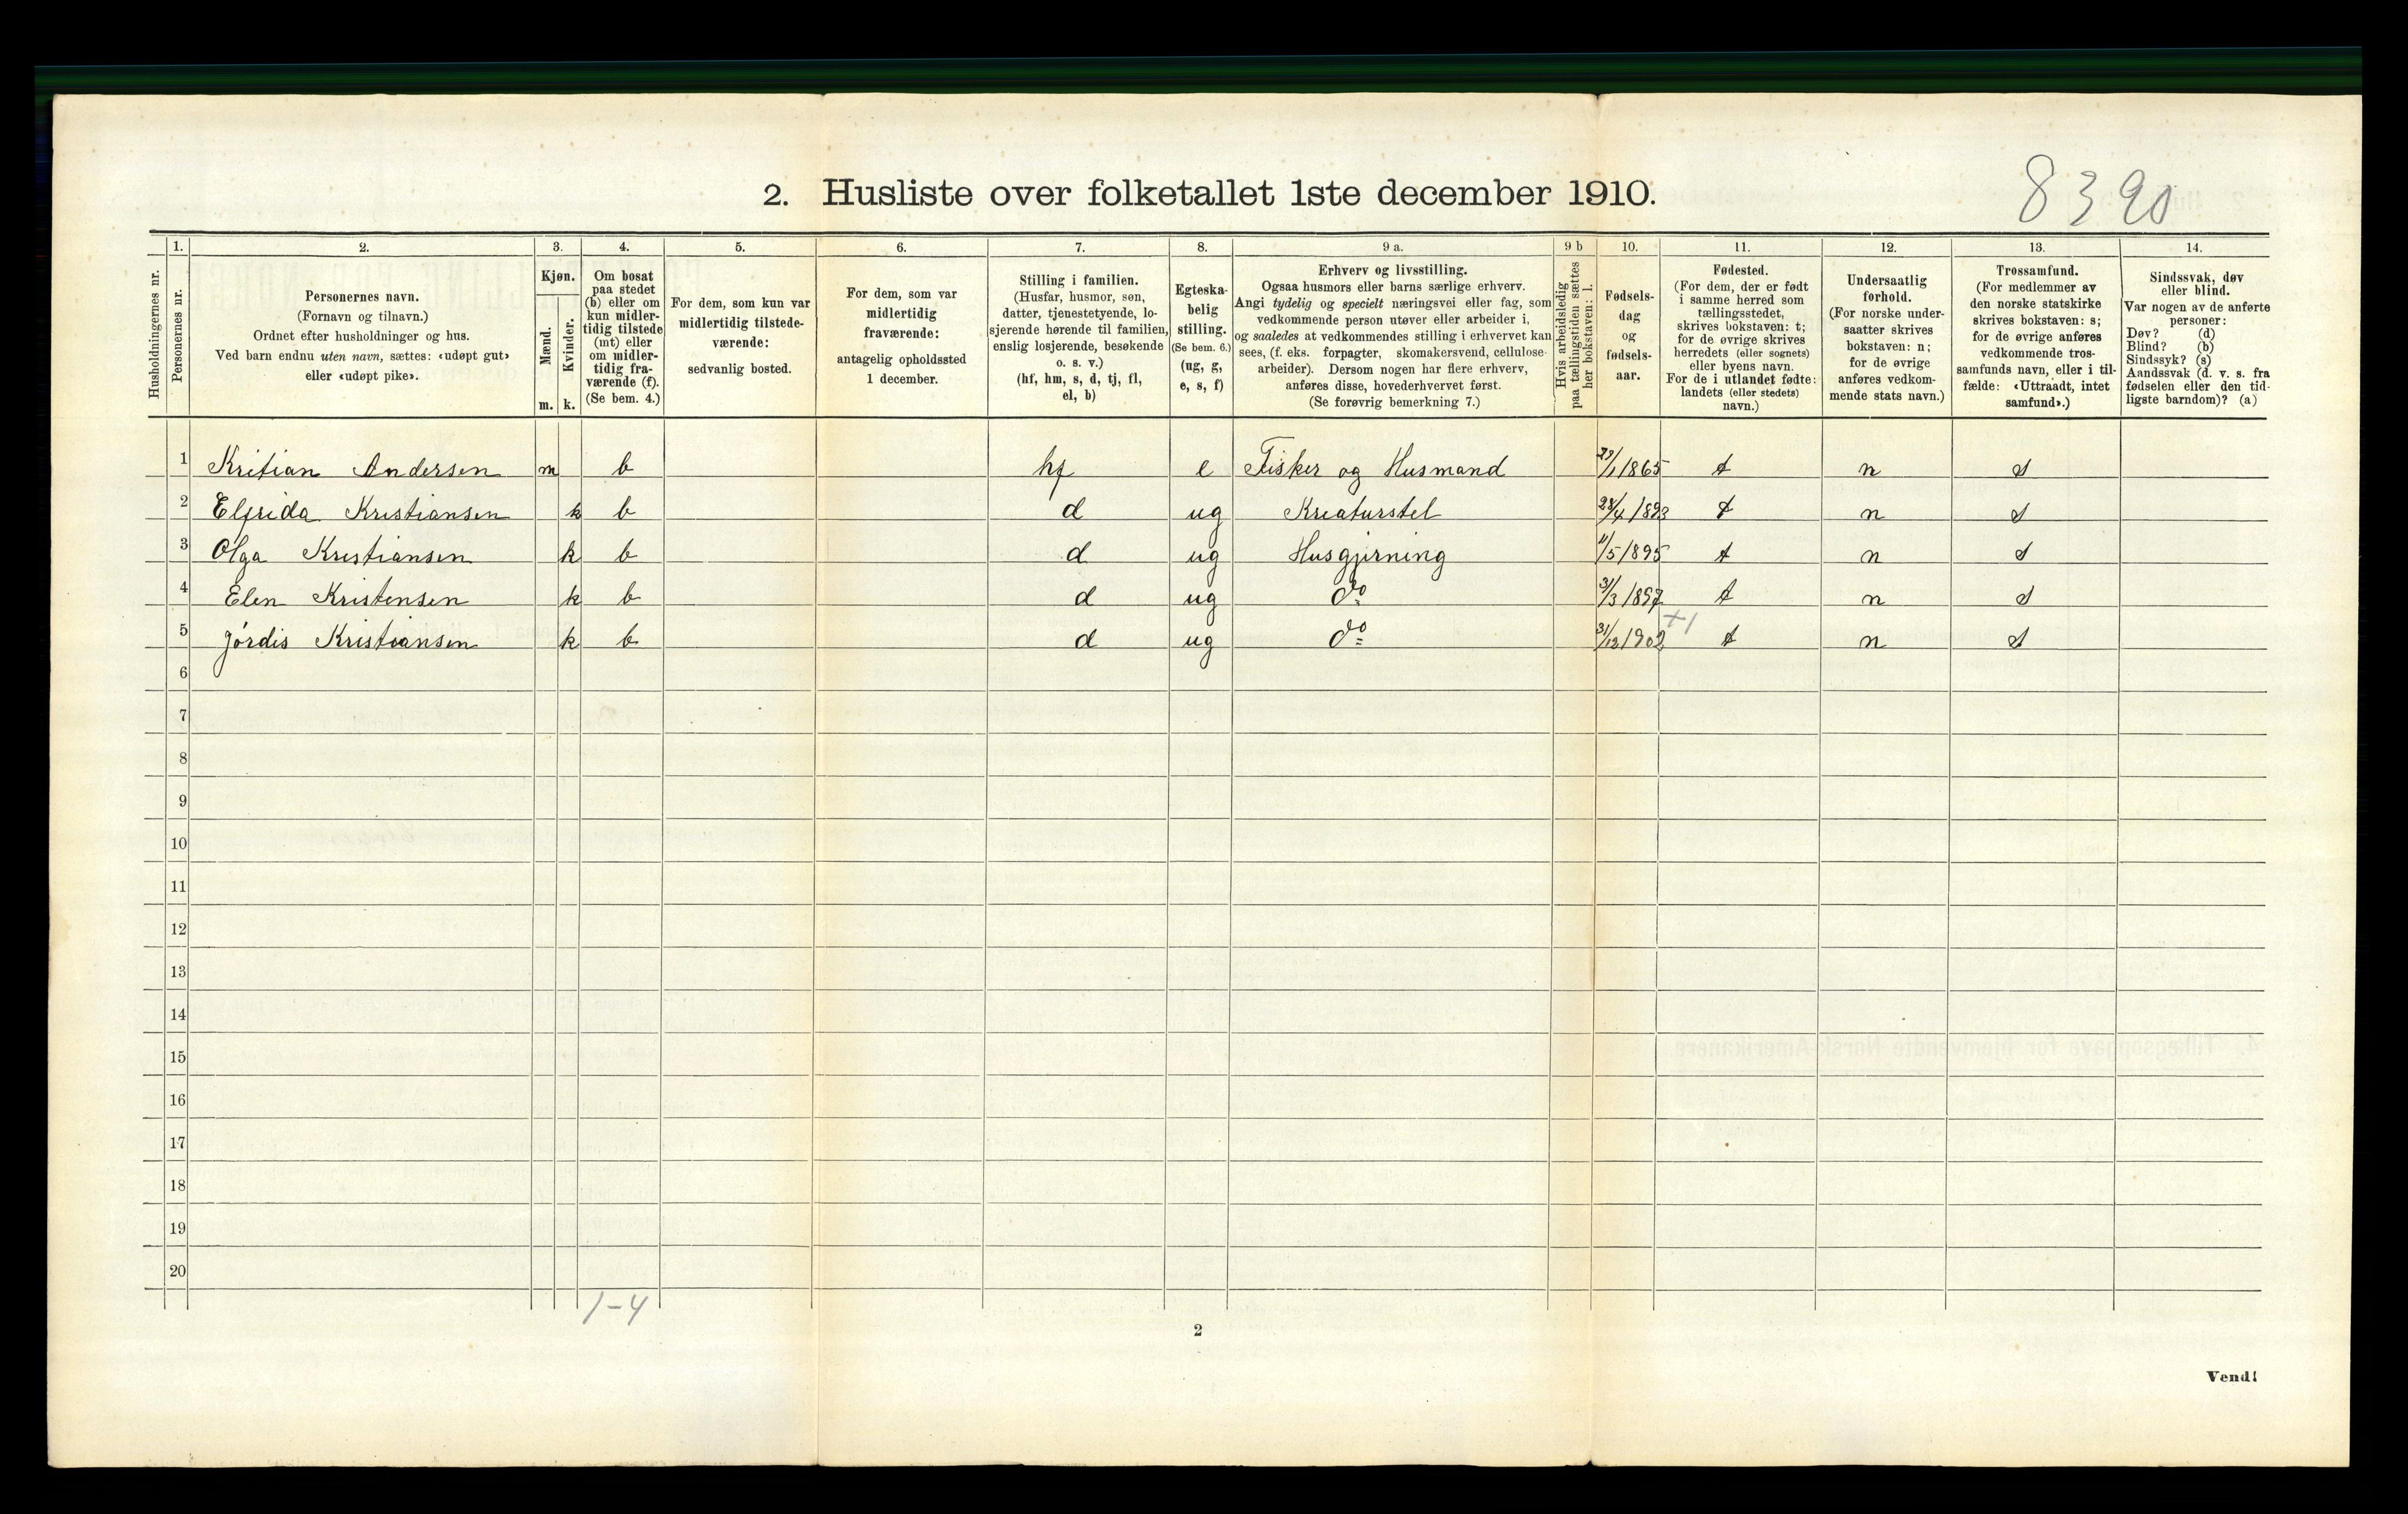 8390
2. Husliste over folketallet 1ste december 1910.
Husholdningernes nr.
1.
Personernes nr.
2.
Personernes navn.
(Fornavn og tilnavn.)
Ordnet efter husholdninger og hus.
Ved barn endnu uten navn, sættes: «udøpt gut»
eller «udøpt pike».
3.
Kjøn.
Mænd.
Kvinder.
m. k.
4.
Om bosat
paa stedet
(b) eller om
kun midler-
tidig tilstede
(mt) eller
om midler-
tidig fra-
værende (f).
(Se bem. 4.)
5.
For dem, som kun var
midlertidig tilstede-
værende:
sedvanlig bosted.
6.
For dem, som var
midlertidig
fraværende:
antagelig opholdssted
1 december.
7.
Stilling i familien.
(Husfar, husmor, søn,
datter, tjenestetyende, lo-
sjerende hørende til familien,
enslig losjerende, besøkende
o. s. v.)
(hf, hm, s, d, tj, fl,
el, b)
8.
Egteska-
belig
stilling.
(Se bem. 6.)
(ug, g,
e, s, f)
9 a.
Erhverv og livsstilling.
Ogsaa husmors eller barns særlige erhverv.
Angi tydelig og specielt næringsvei eller fag, som
vedkommende person utøver eller arbeider i,
og saaledes at vedkommendes stilling i erhvervet kan
sees, (f. eks. forpagter, skomakersvend, cellulose-
arbeider). Dersom nogen har flere erhverv,
anføres disse, hovederhvervet først.
(Se forøvrig bemerkning 7.)
9 b
Hvis arbeidsledig
paa tællingstiden sættes
her bokstaven: l.
10.
Fødsels-
dag
og
fødsels-
aar.
11.
Fødested.
(For dem, der er født
i samme herred som
tællingsstedet,
skrives bokstaven: t;
for de øvrige skrives
herredets (eller sognets)
eller byens navn.
For de i utlandet fødte:
landets (eller stedets)
navn.)
12.
Undersaatlig
forhold.
(For norske under-
saatter skrives
bokstaven: n;
for de øvrige
anføres vedkom-
mende stats navn.)
13.
Trossamfund.
(For medlemmer av
den norske statskirke
skrives bokstaven: s;
for de øvrige anføres
vedkommende tros-
samfunds navn, eller i til-
fælde: «Uttraadt, intet
samfund».)
14.
Sindssvak, døv
eller blind.
Var nogen av de anførte
personer:
Døv? (d)
Blind? (b)
Sindssyk? (s)
Aandssvak (d. v. s. fra
fødselen eller den tid-
ligste barndom)? (a)
1 Kritian Andersen m b hf e Fisker og Husmand /1 1865 t n s
2 Elfrida Kristiansen k b d ug Kreaturstel 28/4 1893 t n s
3 Olga Kristiansen k b d ug Husgjerning 11/5 1895 t n s
4 Elen Kristensen k b d ug do 31/3 1897 t n s
5 Jórdis Kristiansen k b d ug do 31/12 1902 +1 t n s
6
7
8
9
10
11
12
13
14
15
16
17
18
19
20
1-4
2
Vend!